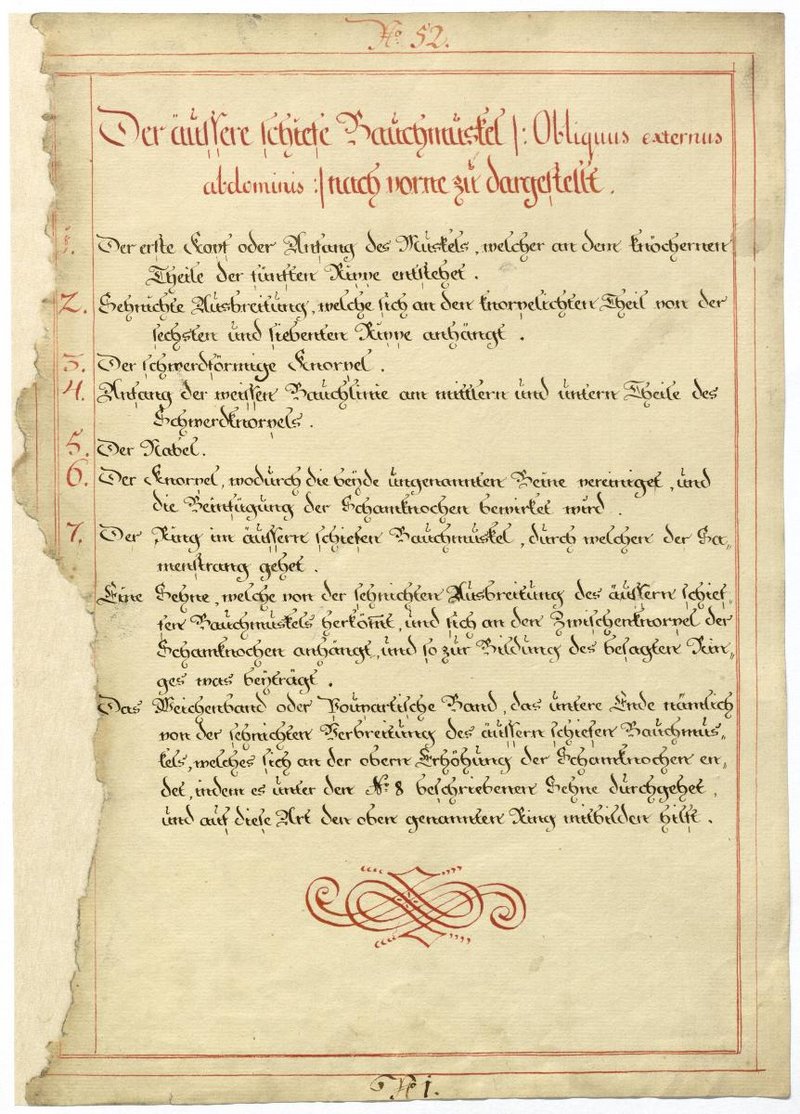 No. 52.
Der äussere schiefe Bauchmuskel /: Obliquus externus
abdominis :/ nach vorne zu dargestellt.
1. Der erste Kopf oder Anfang des Muskels, welcher an dem knöchernen
Theile der fünften Rippe entstehet.
2. Sehnichte Ausbreitung, welche sich an den knorpelichten Theil von der
sechsten und siebenten Rippe anhängt.
3. Der schwerdförmige Knorpel.
4. Anfang der weissen Bauchlinie am mittlern und untern Theile des
Schwerdknorpels.
5. Der Nabel.
6. Der Knorpel, wodurch die beyde ungenannten Beine vereiniget, und
die Beinfügung der Schamknochen bewirket wird.
7. Der Ring im äussern schiefen Bauchmuskel, durch welchen der Sa-
menstrang gehet.
Eine Sehne, welche von der sehnichten Ausbreitung des äussern schief-
fen Bauchmuskels herkom̄t, und sich an den Zwischenknorpel der
Schamknochen anhängt, und so zur Bildung des besagten Rin-
ges was beyträgt.
Das Weichenband oder Poupartische Band, das untere Ende nämlich
von der sehnichten Verbreitung des äussern schiefen Bauchmus-
kels, welches sich an der obern Erhöhung der Schamknochen en-
det, indem es unter der No. 8 beschriebenen Sehne durchgehet,
und auf diese Art den oben genannten Ring mitbilden hilft.
No 1.